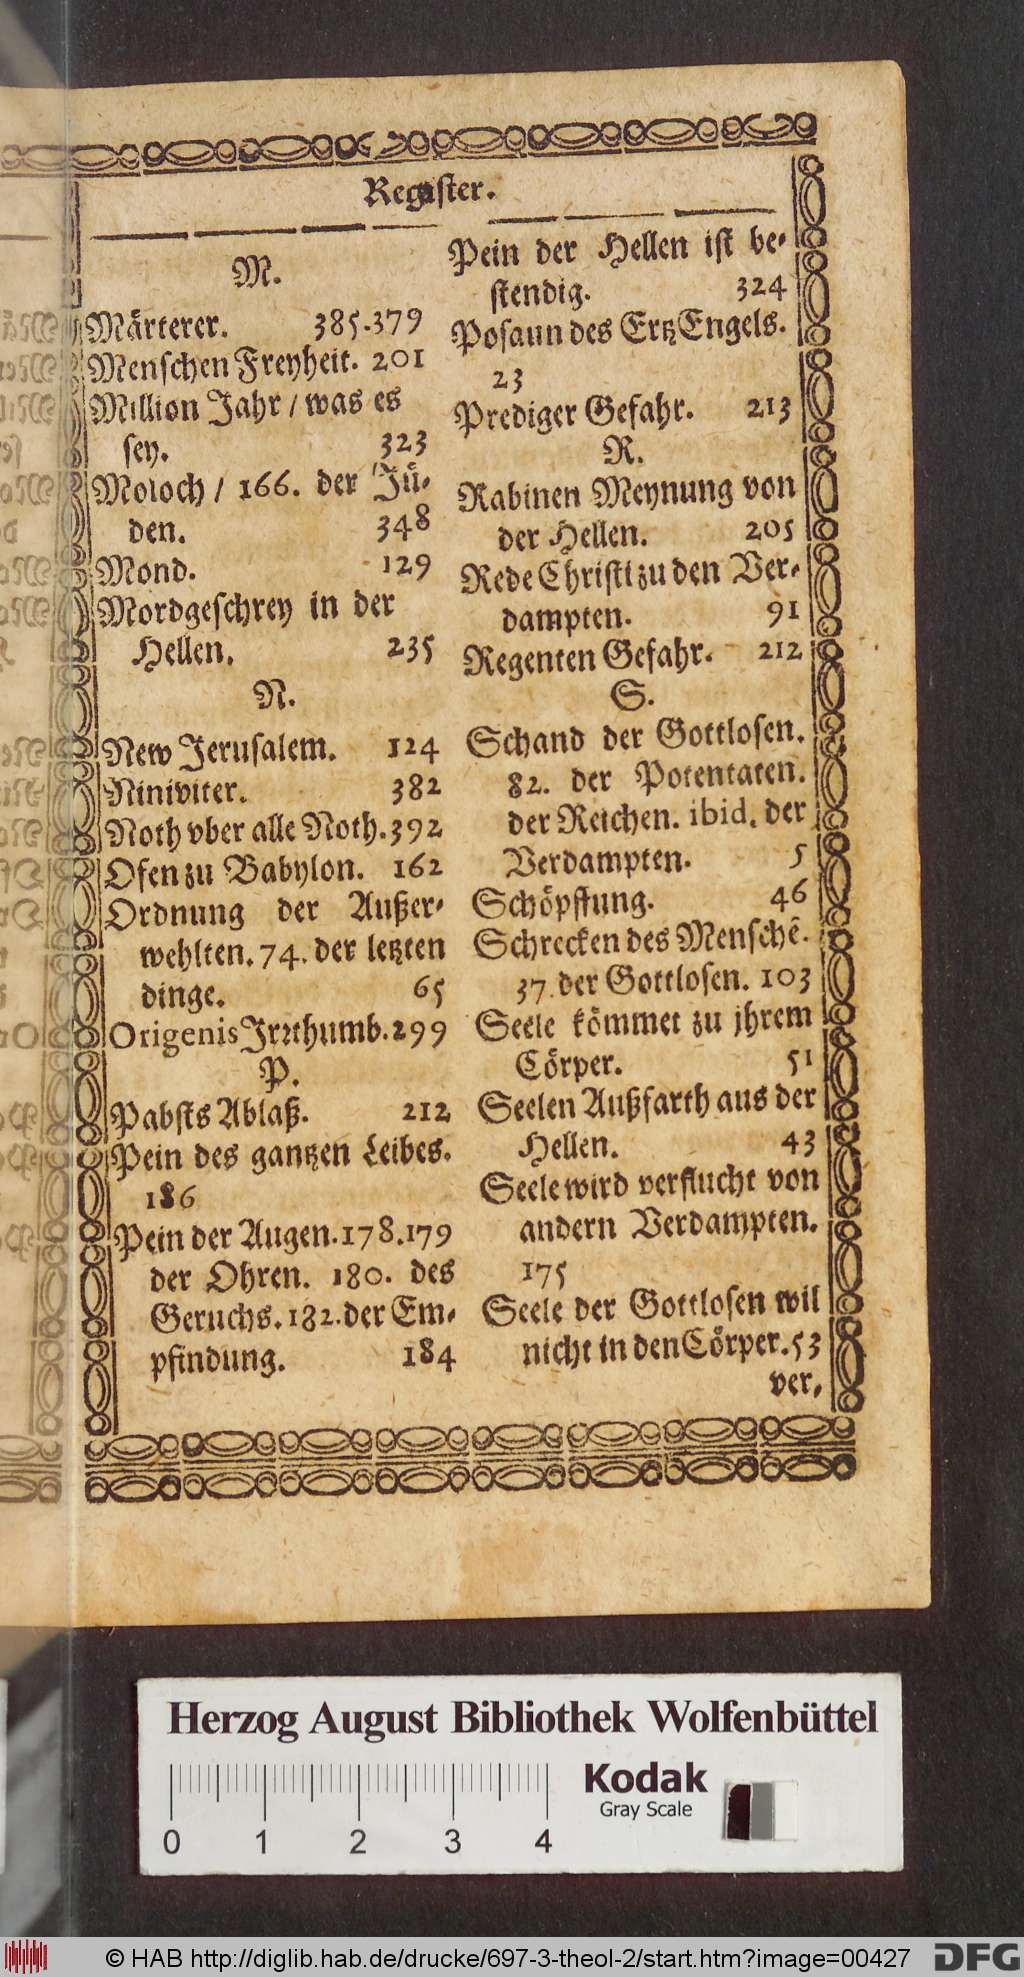 Register.
M.
Märterer. 385.379
Menschen Freyheit. 201
Million Jahr / was es
sey. 323
Moloch / 166. der Jü-
den. 348
Mond. 129
Mordgeschrey in der
Hellen. 235
N.
New Jerusalem. 124
Niniviter. 382
Noth vber alle Noth. 392
Ofen zu Babylon. 162
Ordnung der Außer-
wehlten. 74. der letzten
dinge. 65
Origenis Jrrthumb. 299
P.
Pabsts Ablaß. 212
Pein des gantzen Leibes.
186
Pein der Augen. 178.179
der Ohren. 180. des
Geruchs. 182. der Em-
pfindung. 184
Pein der Hellen ist be-
stendig. 324
Posaun des ErtzEngels.
23
Prediger Gefahr. 213
R.
Rabinen Meynung von
der Hellen. 205
Rede Christi zu den Ver-
dampten. 91
Regenten Gefahr. 212
S.
Schand der Gottlosen.
82. der Potentaten.
der Reichen. ibid. der
Verdampten. 5
Schöpffung. 46
Schrecken des Menschẽ.
37. der Gottlosen. 103
Seele kömmet zu jhrem
Cörper. 51
Seelen Außfarth aus der
Hellen. 43
Seele wird verflucht von
andern Verdampten.
175
Seele der Gottlosen wil
nicht in den Cörper. 53
ver-
Herzog August Bibliothek Wolfenbüttel
Kodak
Gray Scale
0 1 2 3 4
© HAB http://diglib.hab.de/drucke/697-3-theol-2/start.htm?image=00427
DFG